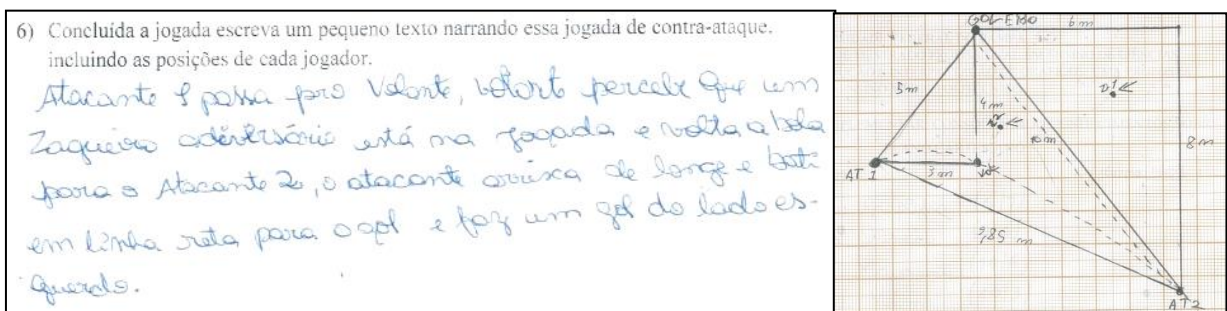 6) Concluída a jogada escreva um pequeno texto narrando essa jogada de contra-ataque,
incluindo as posições de cada jogador.
Atacante 1 passa pro Volante, volante percebe que um
Zagueiro adversário está na jogada e volta a bola
para o Atacante 2, o atacante arrisca de longe e bate
em linha reta para o gol e faz um gol do lado es-
querdo.
GOLEIRO 6 m
5 m
4 m
Z1
Z2
10 m
8 m
AT 1
3 m
9,85 m
AT2